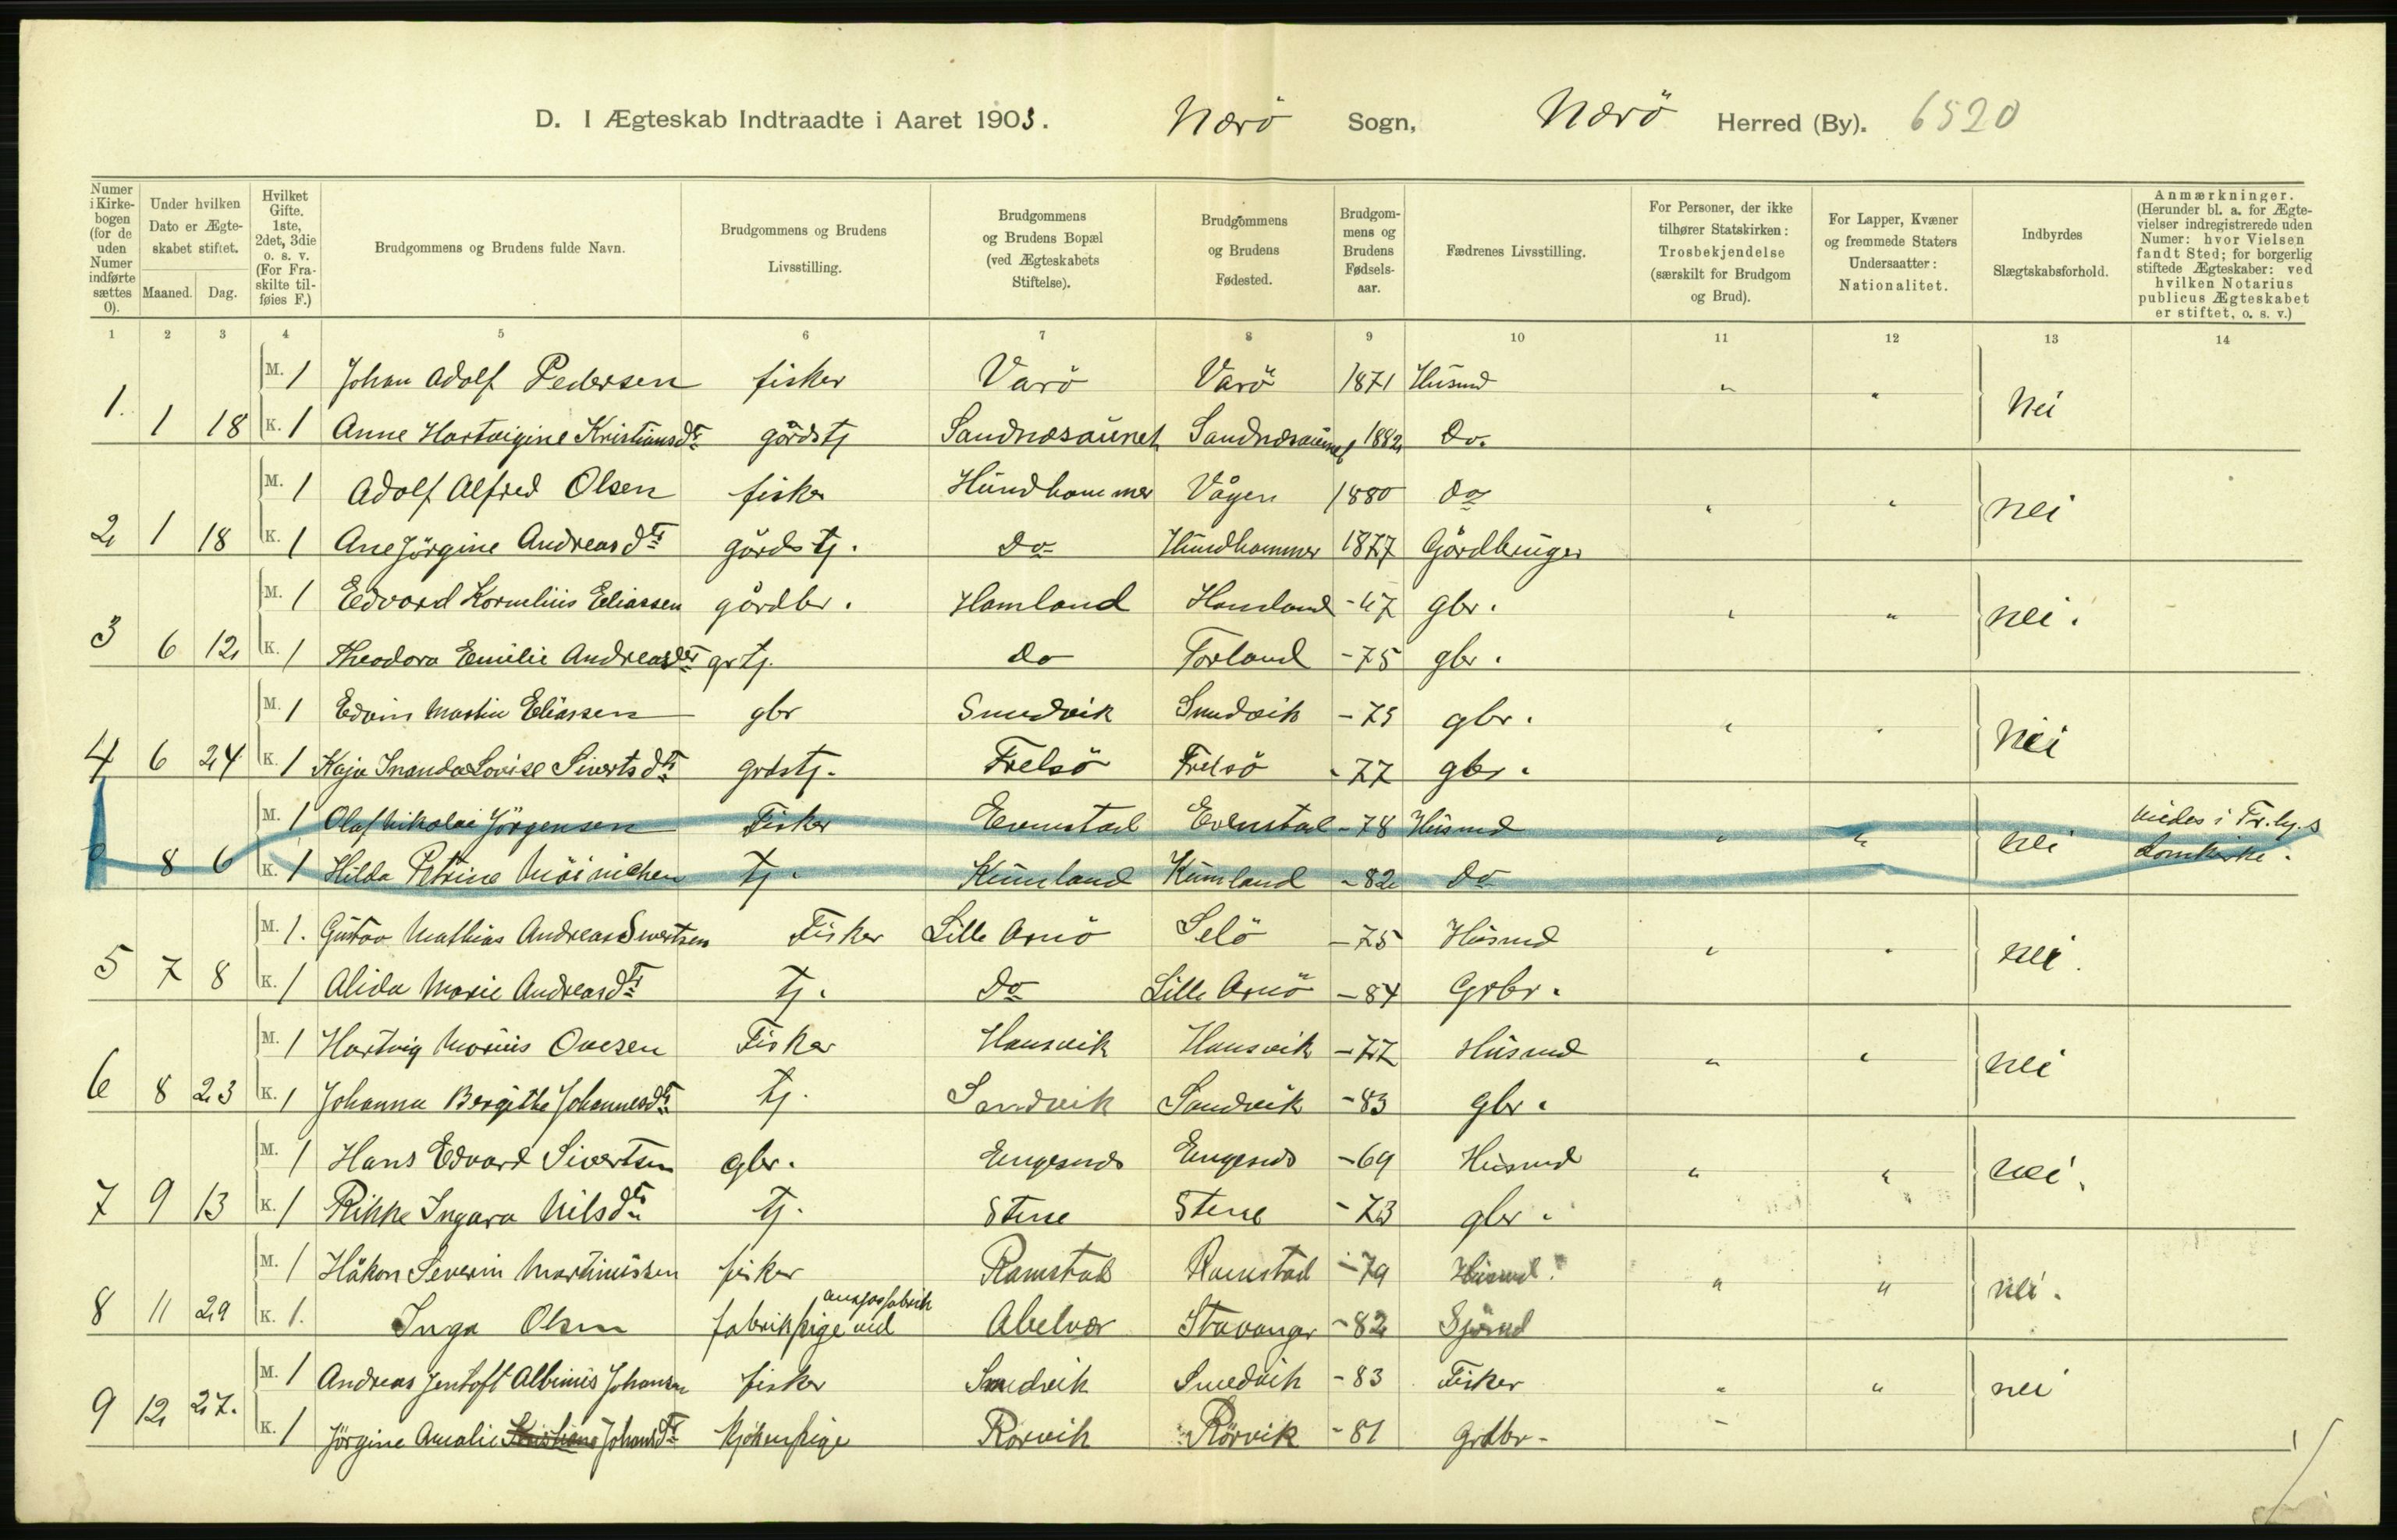 D. I Ægteskab Indtraadte i Aaret 1903. Nærö Sogn, Nærö Herred (By). 6520
Numer i Kirkebogen (for de uden Numer indførte sættes 0).
Under hvilken Dato er Ægteskabet stiftet.
Maaned. Dag.
Hvilket Gifte. 1ste, 2det, 3die o. s. v. (For Fraskilte tilføies F.)
Brudgommens og Brudens fulde Navn.
Brudgommens og Brudens Livsstilling.
Brudgommens og Brudens Bopæl (ved Ægteskabets Stiftelse).
Brudgommens og Brudens Fødested.
Brudgommens og Brudens Fødselsaar.
Fædrenes Livsstilling.
For Personer, der ikke tilhører Statskirken: Trosbekjendelse (særskilt for Brudgom og Brud).
For Lapper, Kvæner og fremmede Staters Undersaatter: Nationalitet.
Indbyrdes Slægtskabsforhold.
Anmærkninger. (Herunder bl. a. for Ægtevielser indregistrerede uden Numer: hvor Vielsen fandt Sted; for borgerlig stiftede Ægteskaber: ved hvilken Notarius publicus Ægteskabet er stiftet, o. s. v.)
1 2 3 4 5 6 7 8 9 10 11 12 13 14
M. 1 Johan Adolf Pedersen fisker Varö Varö 1871 Husmd " "
1. 1 18 K. 1 Anne Hartvigine Kristiansdtr gårdstj Sandnæsaunet Sandnæsaunet 1882 Do. Nei
M. 1 Adolf Alfred Olsen fisker Hundhammer Vågen 1880 do " "
2 1 18 K. 1 Ane Jörgine Andreasdtr gårdstj. do Hundhammer 1877 Gårdbruger nei
M. 1 Edvard Kornelius Eliassen gårdbr. Hamland Hamland -47 gbr. " "
3 6 12 K. 1 Theodora Emilie Andreasdtr grtj. do Torland -75 gbr. nei.
M. 1 Edvin Martin Eliassen gbr Smedvik Smedvik -75 gbr. " "
4 6 24 K. 1 Kaja Lovise Sivertsdtr grdstj. Frelsö Frelsö -77 gbr. Nei
M. 1 Olaf Nikolai Jörgensen Fisker Evenstad Evenstad -78 Husmd " " viedes i Tr.hj.s
8 6 K. 1 Hilda Petrine tj. Kumland Kumland -82 do nei Domkirke.
M. 1. Gustav Mathias Andreas Sivertsen Fisker Lille Arnö Selö -75 Husmd " "
5 7 8 K. 1 Alida Marie Andreasdtr tj. do Lille Arnö -84 Grbr. nei.
M. 1 Hartvig Marius Ovesen Fisker Hansvik Hansvik -77 Husmd " "
6 8 23 K. 1 Johanna Bergitte Johannesdtr tj. Sandvik Sandvik -83 gbr. nei
M. 1 Hans Edvard Sivertsen gbr. Engesnes Engesnes -69 Husmd " "
7 9 13 K. 1 Rikke Ingara Nilsdtr tj. Stene Stene -73 gbr. nei.
M. 1 Håkon Severin Martinussen fisker Ramstad Ramstad -79 Husmd. " "
8 11 29 K. 1. Inga Olsen fabrikpige ved ansjosfabrik Abelvær Stavanger -82 Sjömd nei.
M. 1 Andreas Jentoft Albinus Johansen fisker Smedvik Smedvik -83 Fisker " "
9 12 27. K. 1 Jörgine Amalie Johansdtr kjökenpige Rörvik Rörvik -81 Grdbr- nei